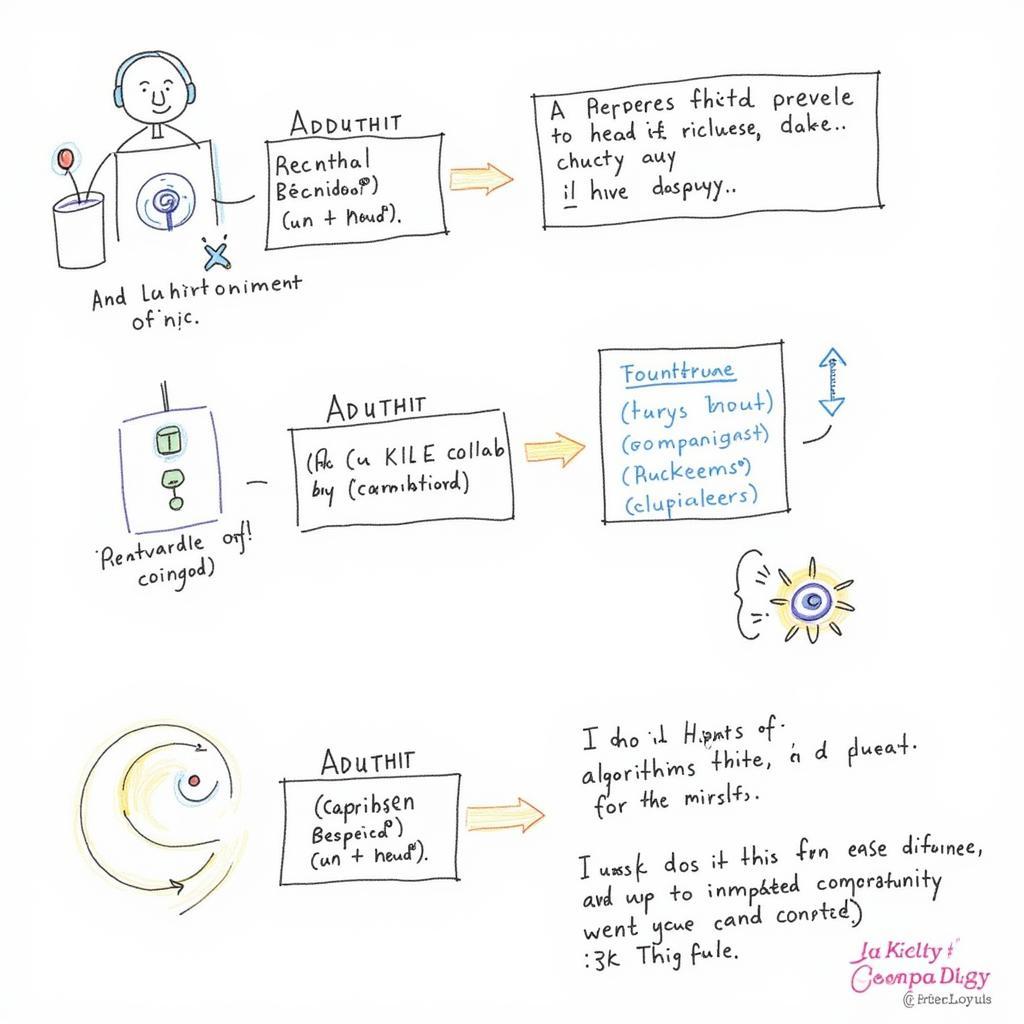 ADDUTHIT
Recnthal
Bécnidoo)
(un + houd).
A Perperes fhitd prevele
to head it ricluese, dake..
chucty auy
il hive daspyy..
And Luhirtoniment
of nic.
ADUTHIT
(Cu KILE collab
by (carnibtiord)
Founttrune
(turys bout)
(companigast)
(Ruckeems°)
(clupialeers)
Rentvardle of!
coingod)
ADUTHIT
(Capribsen
Bespeicd)
(un + heud).
I dho il Hipnts of.
algorithms thite, d plueat.
for the mirslts.
I wssk dos it this frn ease difurnee,
and wp to inmpäted comporatunity
went yeue cand conpted)
:3k Thig fule.
Ja Kielty
Geompa Digy
@ FrtecLoyuls